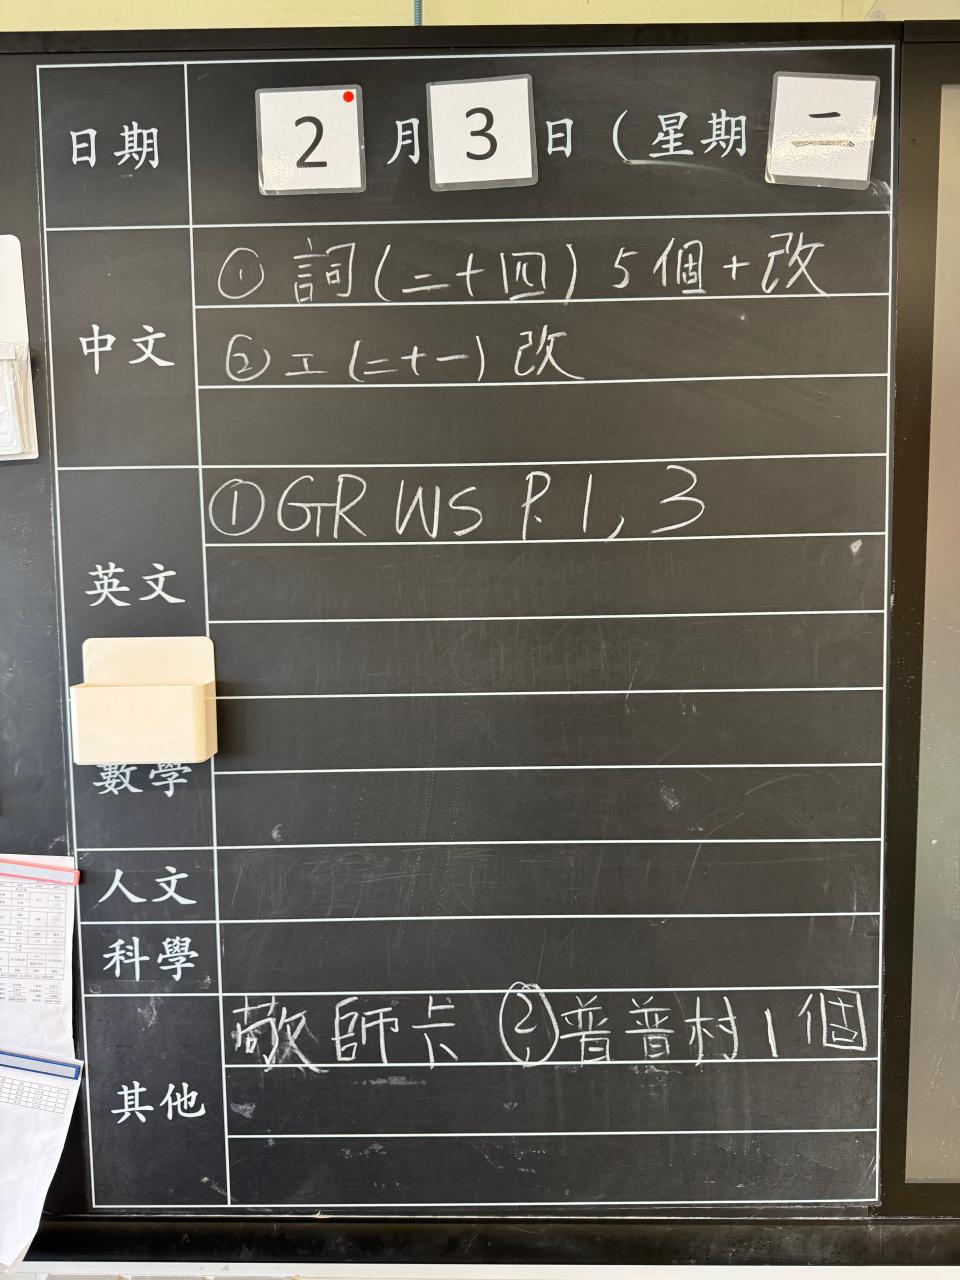 日期 2月3日（星期二
中文
① 詞(二十四) 5個+改
② 工(二十一) 改
英文
① GR WS P.1, 3
數學
人文
科學
其他
敬師卡 ②普普村1個